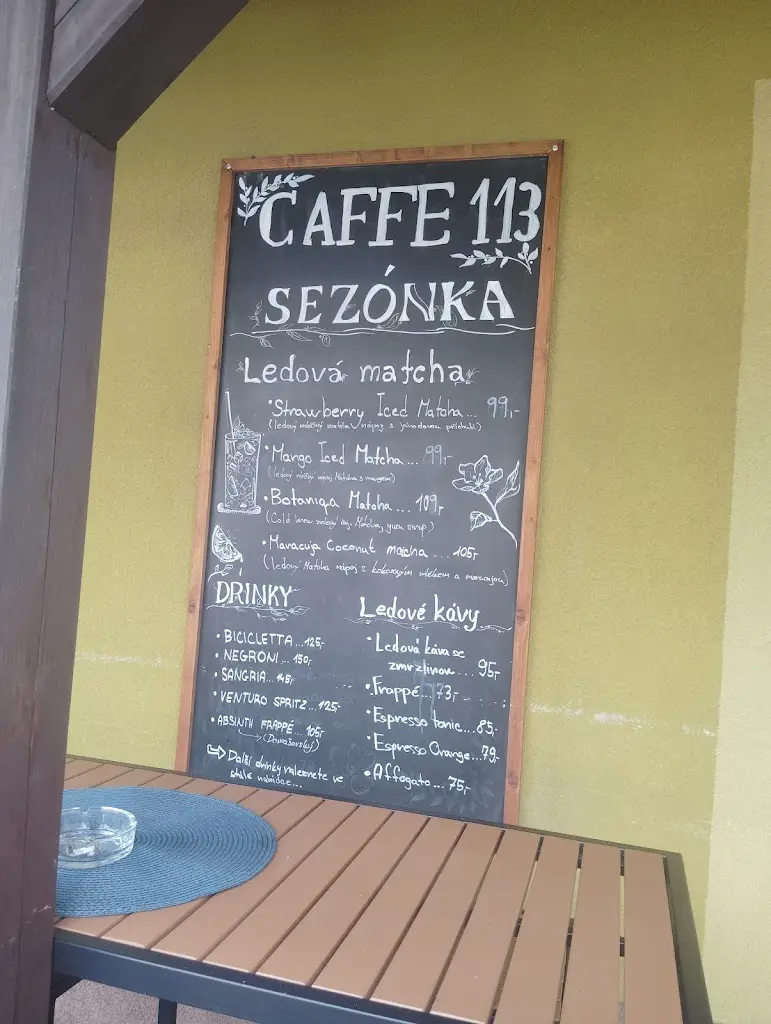 CAFFE 113
SEZÓNKA
Ledová matcha
• Strawberry Iced Matcha... 99,-
(ledový mléčný matcha nápoj s jahodovou příchutí)
• Mango Iced Matcha... 99,-
(ledový mléčný nápoj Matcha s mangem)
• Botaniqa Matcha... 109,-
(Cold brew zelený čaj, Matcha, yuzu sirup)
• Maracuja Coconut matcha... 105,-
(ledový Matcha nápoj s kokosovým mlékem a maracujou)
DRINKY
• BICICLETTA... 125,-
• NEGRONI... 150,-
• SANGRIA... 145,-
• VENTURO SPRITZ... 125,-
• ABSINTH FRAPPÉ... 105,-
Další drinky naleznete ve
stálé nabídce...
Ledové kávy
• Ledová káva se
zmrzlinou.... 95,-
• Frappé... 73,-
• Espresso tonic... 85,-
• Espresso Orange... 79,-
• Affogato... 75,-